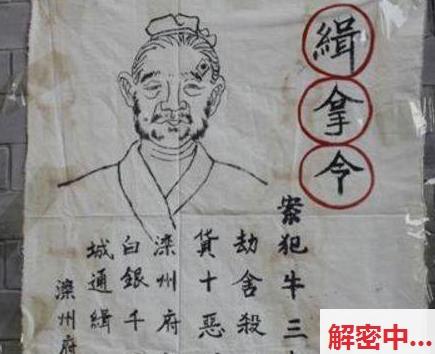 緝拿令
案犯牛三
劫舍殺
貨十惡
滦州府
白銀千
城通緝
滦州府
解密中...